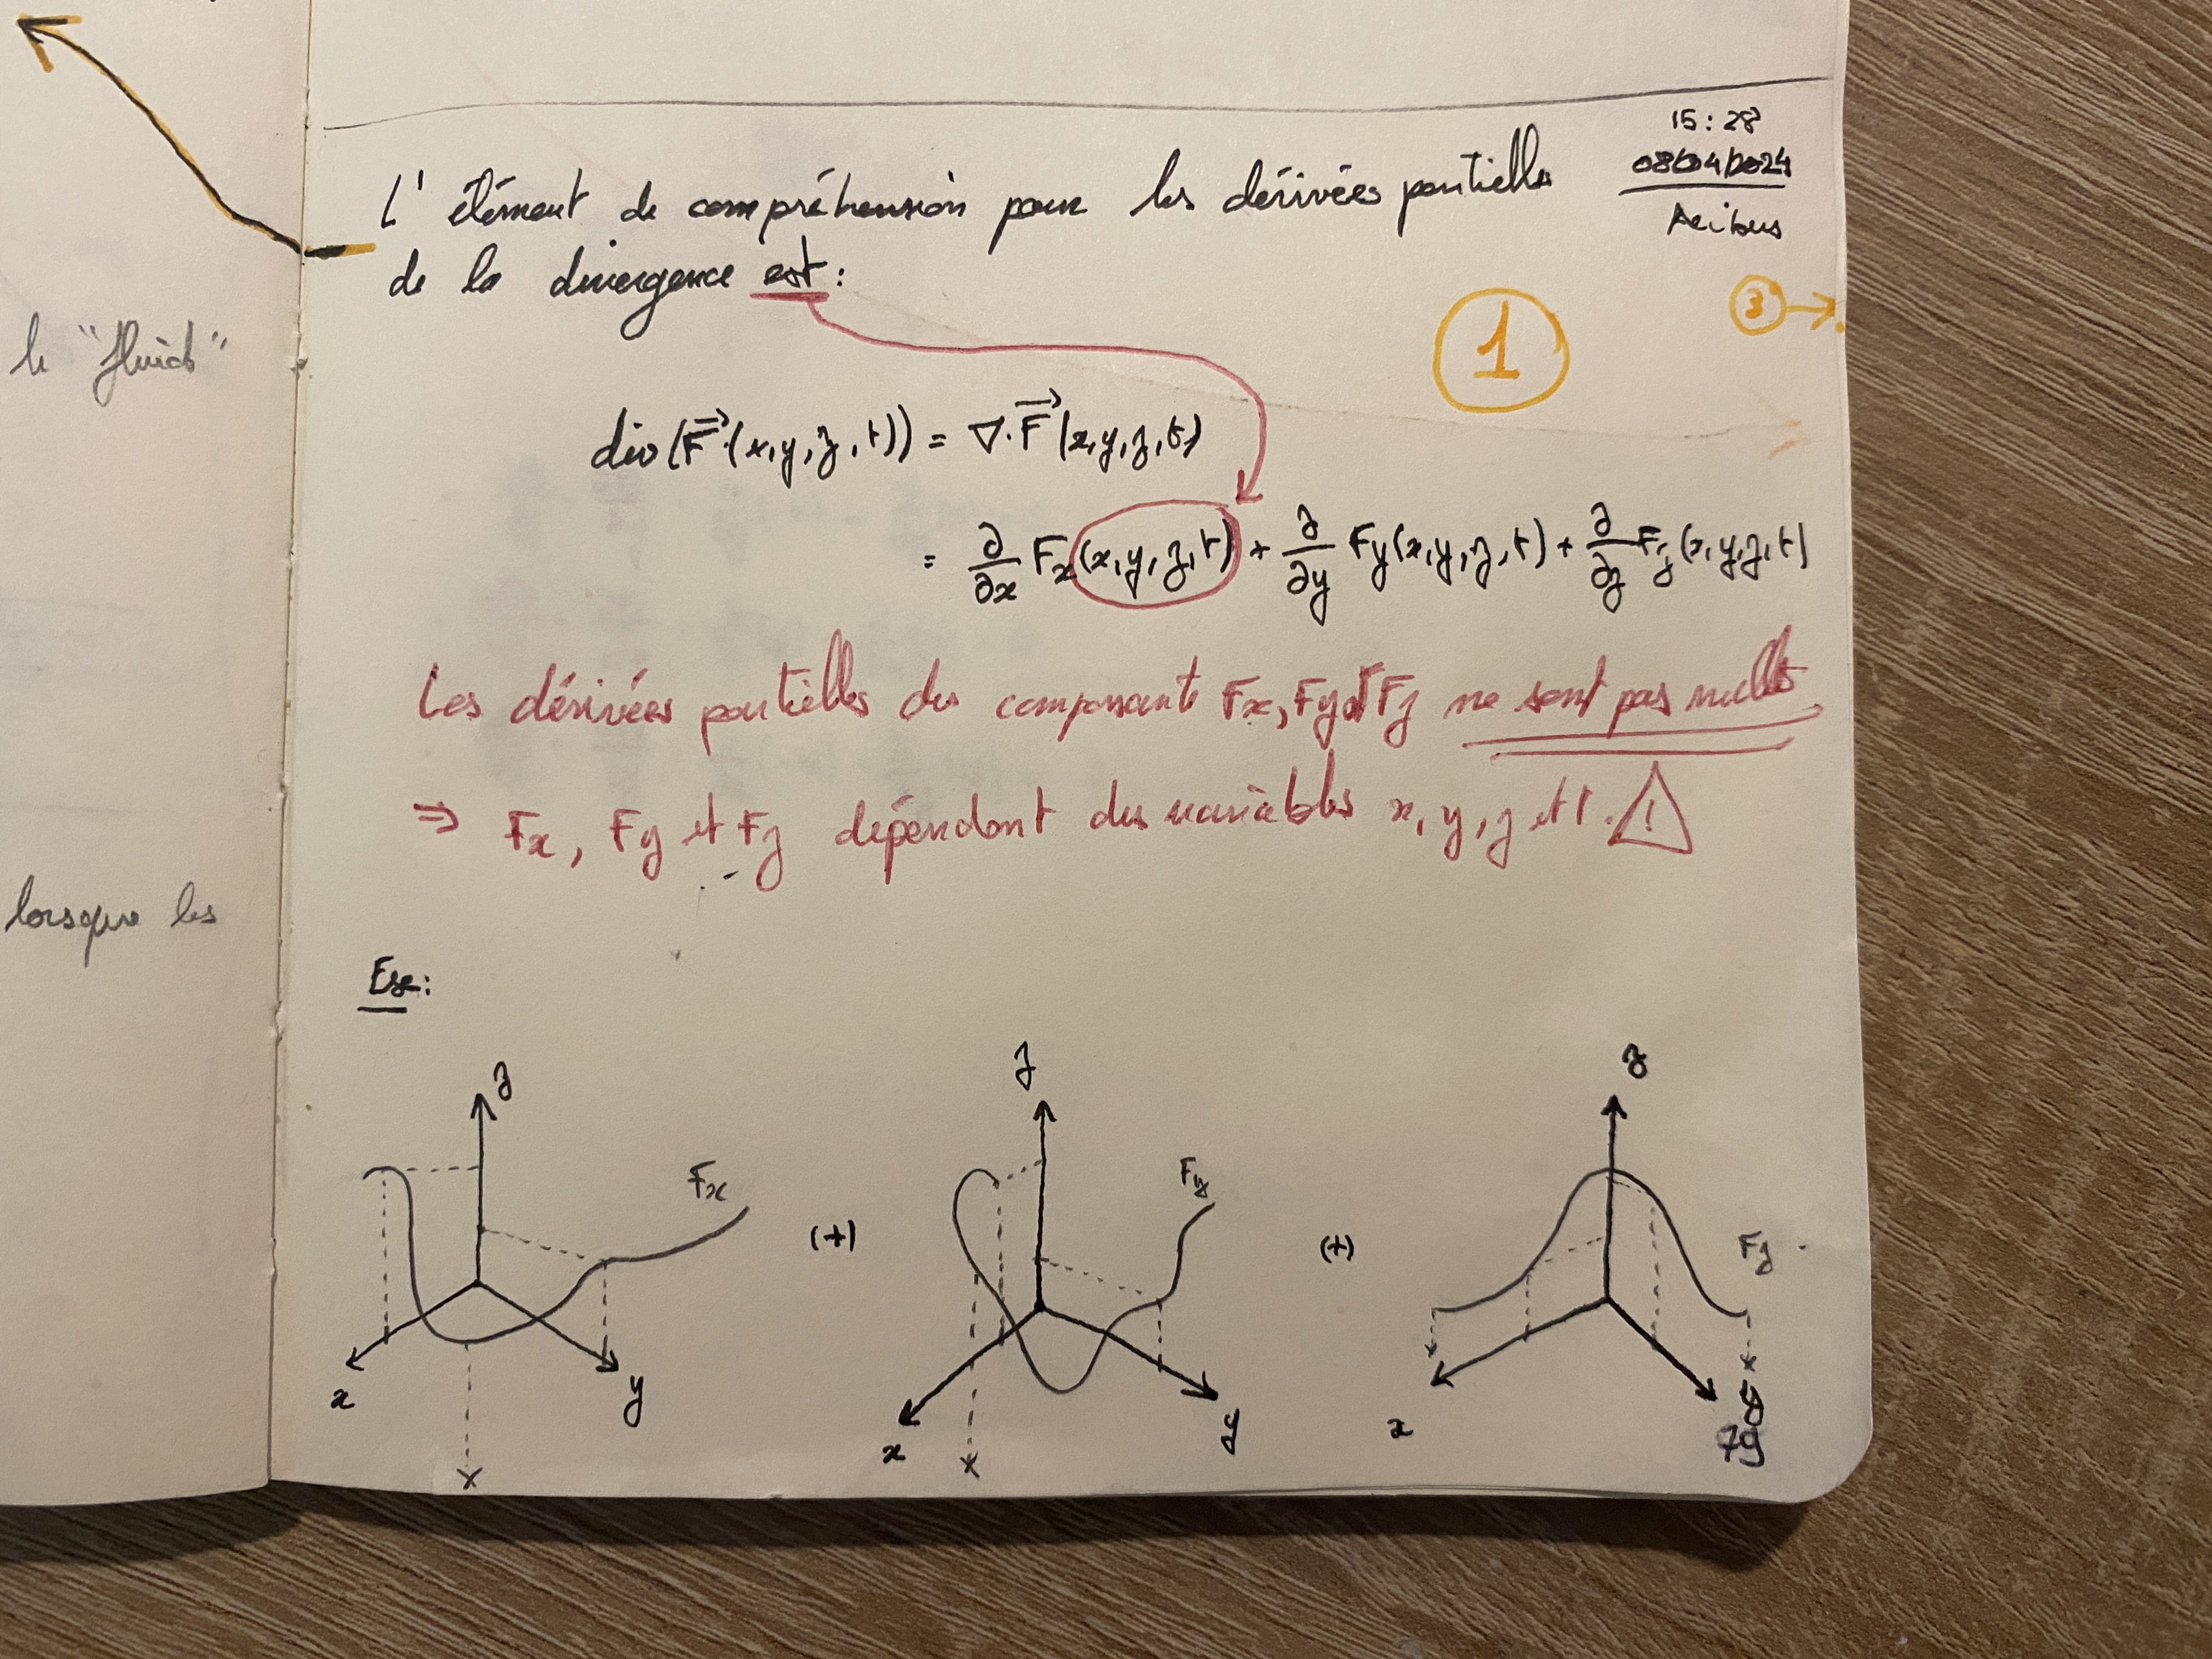 le "fluide"
lorsque les
15:28
08/04/2024
L'élément de compréhension pour les dérivées partielles
de la divergence est :
1
3 →
div(F⃗(x,y,z,t)) = ∇·F⃗(x,y,z,t)
= ∂/∂x Fx(x,y,z,t) + ∂/∂y Fy(x,y,z,t) + ∂/∂z Fz(x,y,z,t)
Les dérivées partielles des composante Fx, Fy et Fz ne sont pas nulles
⇒ Fx, Fy et Fz dépendant des variables x, y, z et t. !
z
x
y
Fx
(+)
z
x
y
Fy
(+)
z
x
y
Fz
79